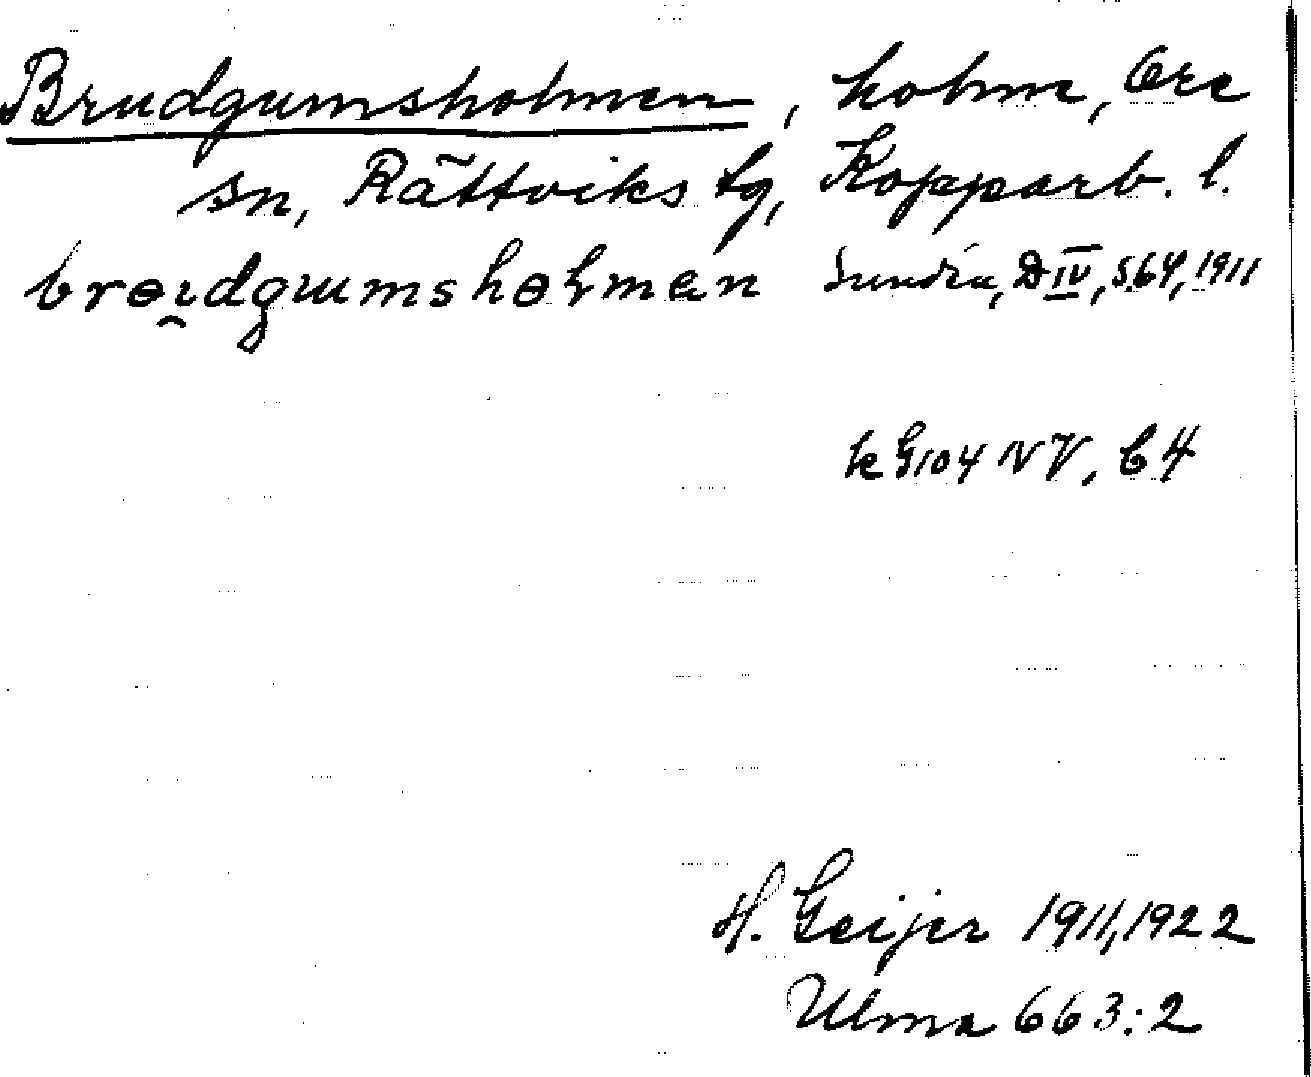 Brudgumsholmen, holme, Ore
sn, Rättviks tg, Kopparb. l.
brɵɪdgɯmshɵɽmɐn Sundra, D IV, S64, 1911
k G104 NV, 64
H. Geijer 1911, 1922
Ulma 663:2